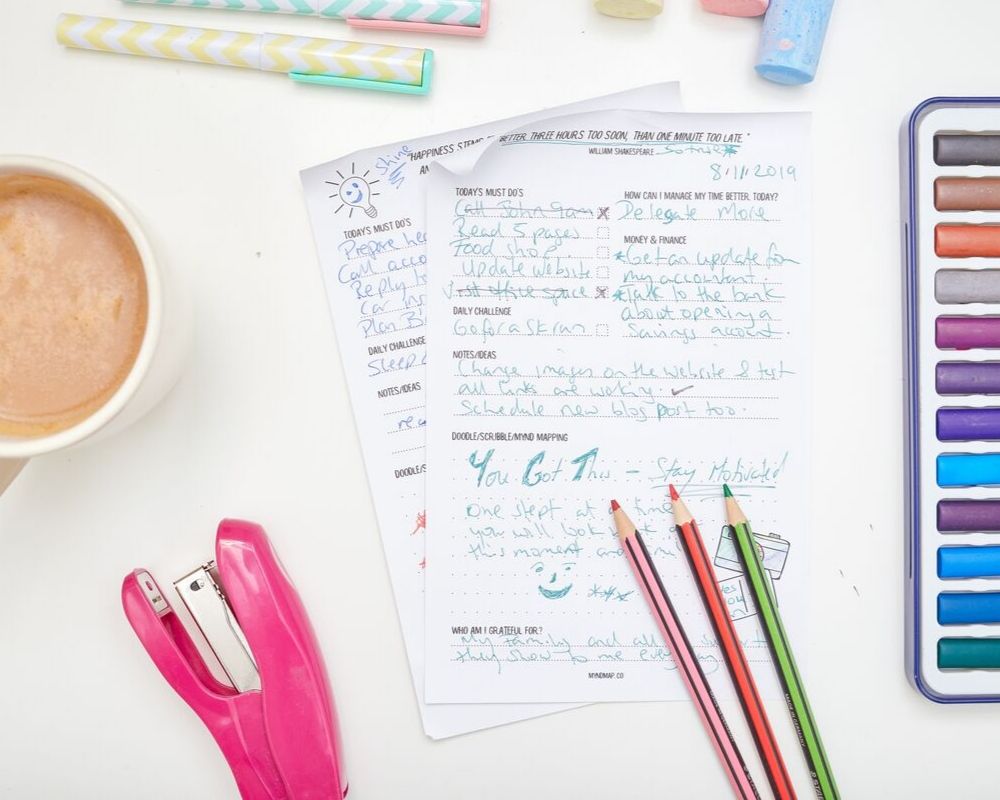 "HAPPINESS STEMS
Shine
AN
TODAY'S MUST DO'S
Prepare
Call acco
Reply to
Car Ins
Plan Bi
DAILY CHALLENGE
Sleep
NOTES/IDEAS
DOODLE/S
"BETTER THREE HOURS TOO SOON, THAN ONE MINUTE TOO LATE."
WILLIAM SHAKESPEARE So true
8/1/2019
TODAY'S MUST DO'S
Call John 9am
Read 5 pages
Food shop.
Update website
Visit office space
DAILY CHALLENGE
Go for a 5k run
HOW CAN I MANAGE MY TIME BETTER, TODAY?
Delegate More
MONEY & FINANCE
*Get an update from
my accountant.
*Talk to the bank
about opening a
Savings account.
NOTES/IDEAS
Change images on the website & test
all links are working. ✓
Schedule new blog post too.
DOODLE/SCRIBBLE/MYND MAPPING
You Got This - Stay Motivated
One stept at a time
you will look
this moment and
yes
you
WHO AM I GRATEFUL FOR?
My family and all support
they show to me everyday
MYNDMAP.CO